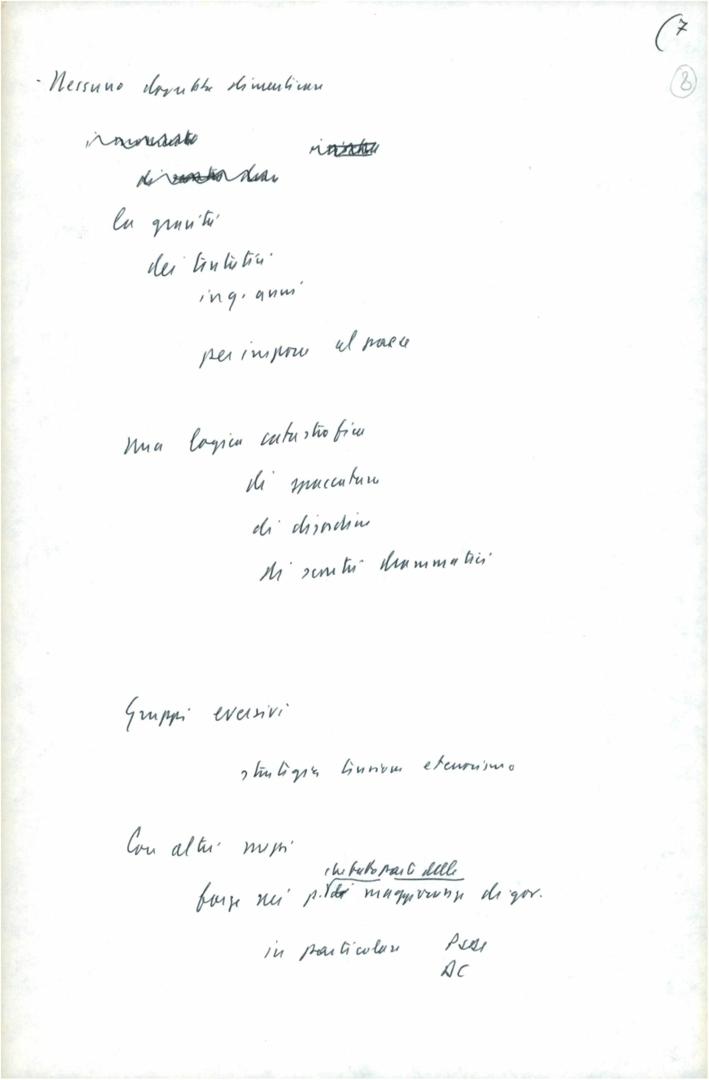 (7
8
- Nessuno dovrebbe dimenticare
la gravità
dei tentativi
in q. anni
per imporre al paese
una logica catastrofica
di spaccature
di disordine
di scontri drammatici
Gruppi eversivi
strategia tensione e terrorismo
Con altri mezzi
che fanno parte delle
forze nei p. maggioranze di gov.
in particolare PSDI
DC